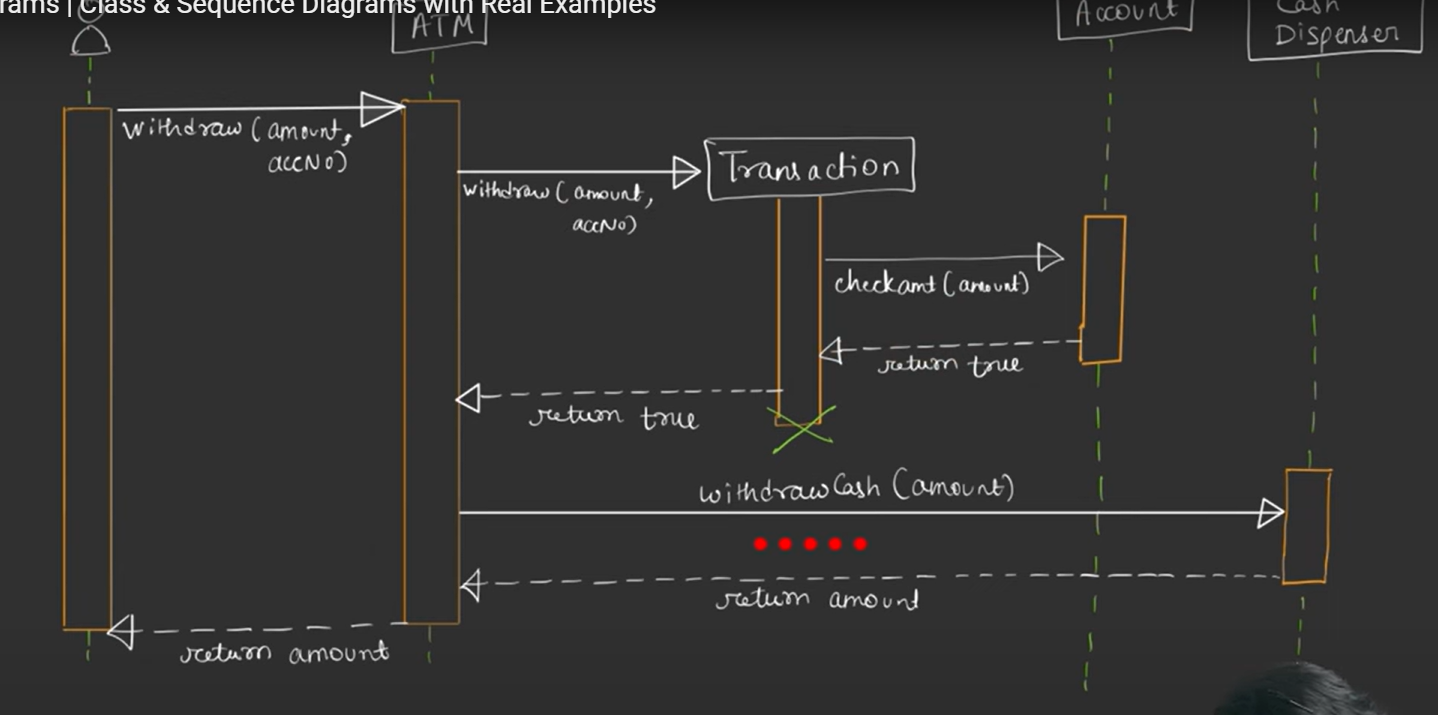 rams | Class & Sequence Diagrams with Real Examples
ATM
Account
Cash
Dispenser
withdraw (amount,
accNo)
Transaction
withdraw (amount,
accNo)
checkamt (amount)
return true
return true
withdrawCash (amount)
return amount
return amount